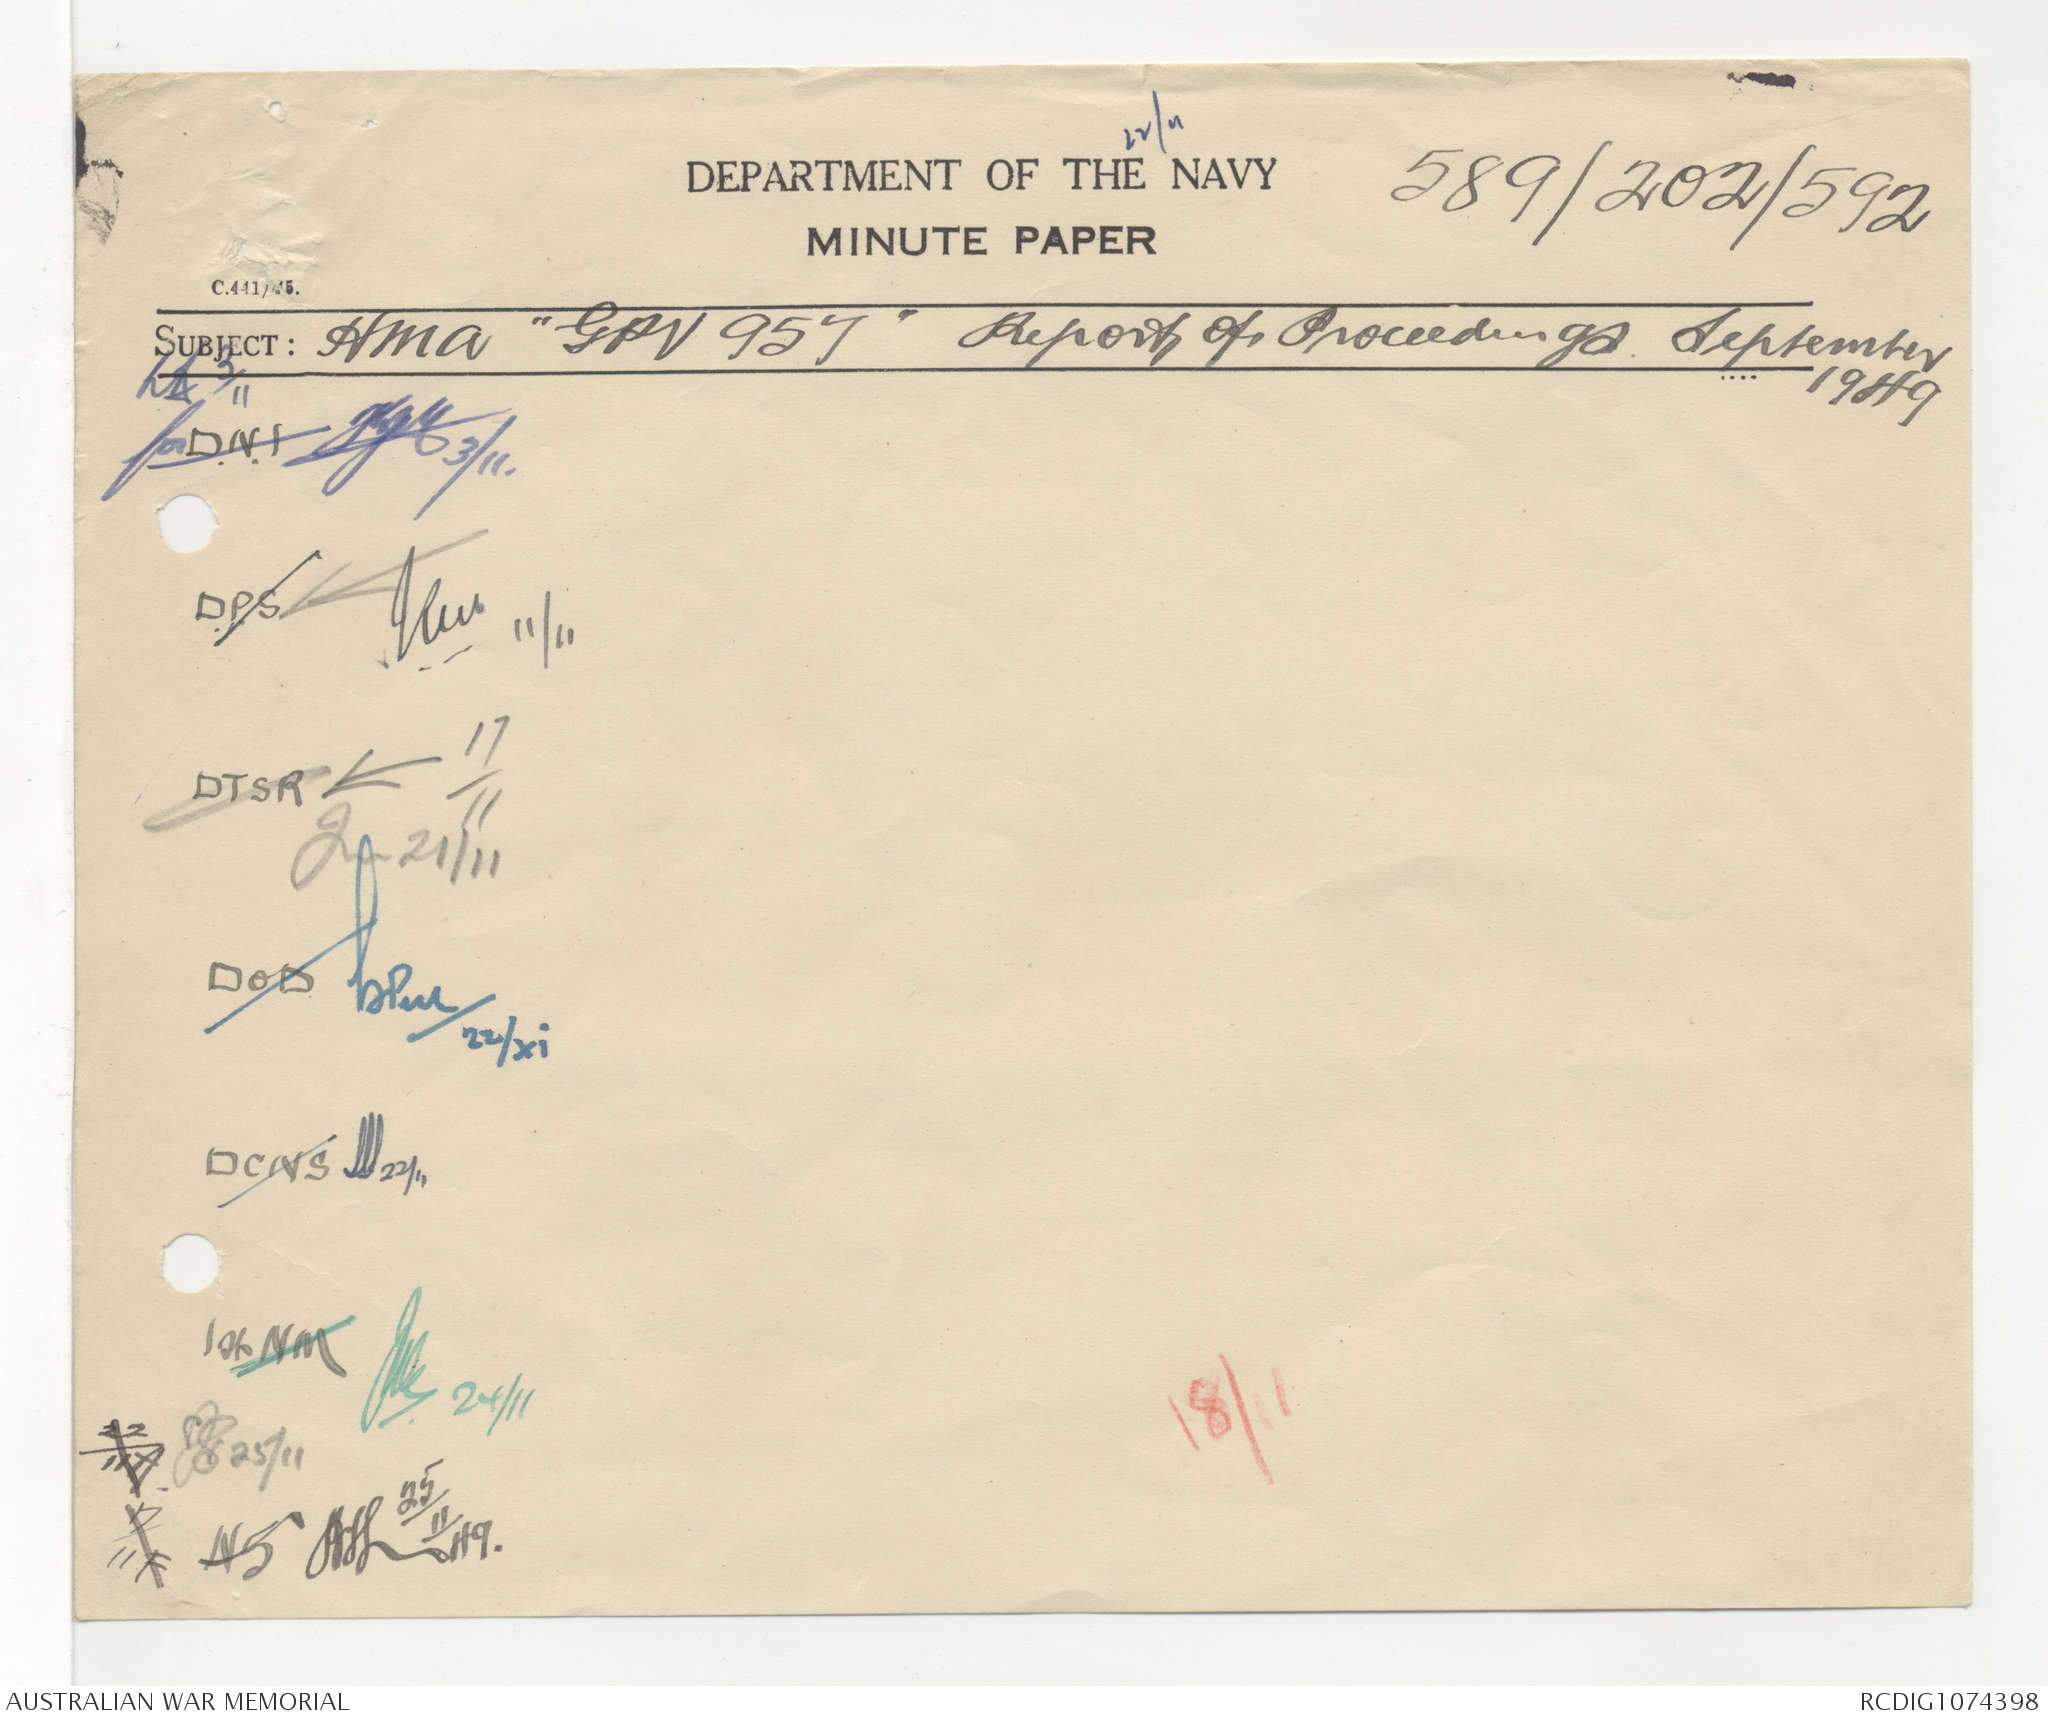 22/11
DEPARTMENT OF THE NAVY
589/202/592
MINUTE PAPER
C.441/45.
SUBJECT: HMA "GPV 957" Report of Proceedings. September
1949
3/11
for D.N.I 3/11.
D.P.S 11/11
DTSR 17/11
21/11
DOD
22/xi
DCNS 22/11
1st NM
24/11
18/11
25/11
N5 25/11/49.
AUSTRALIAN WAR MEMORIAL
RCDIG1074398